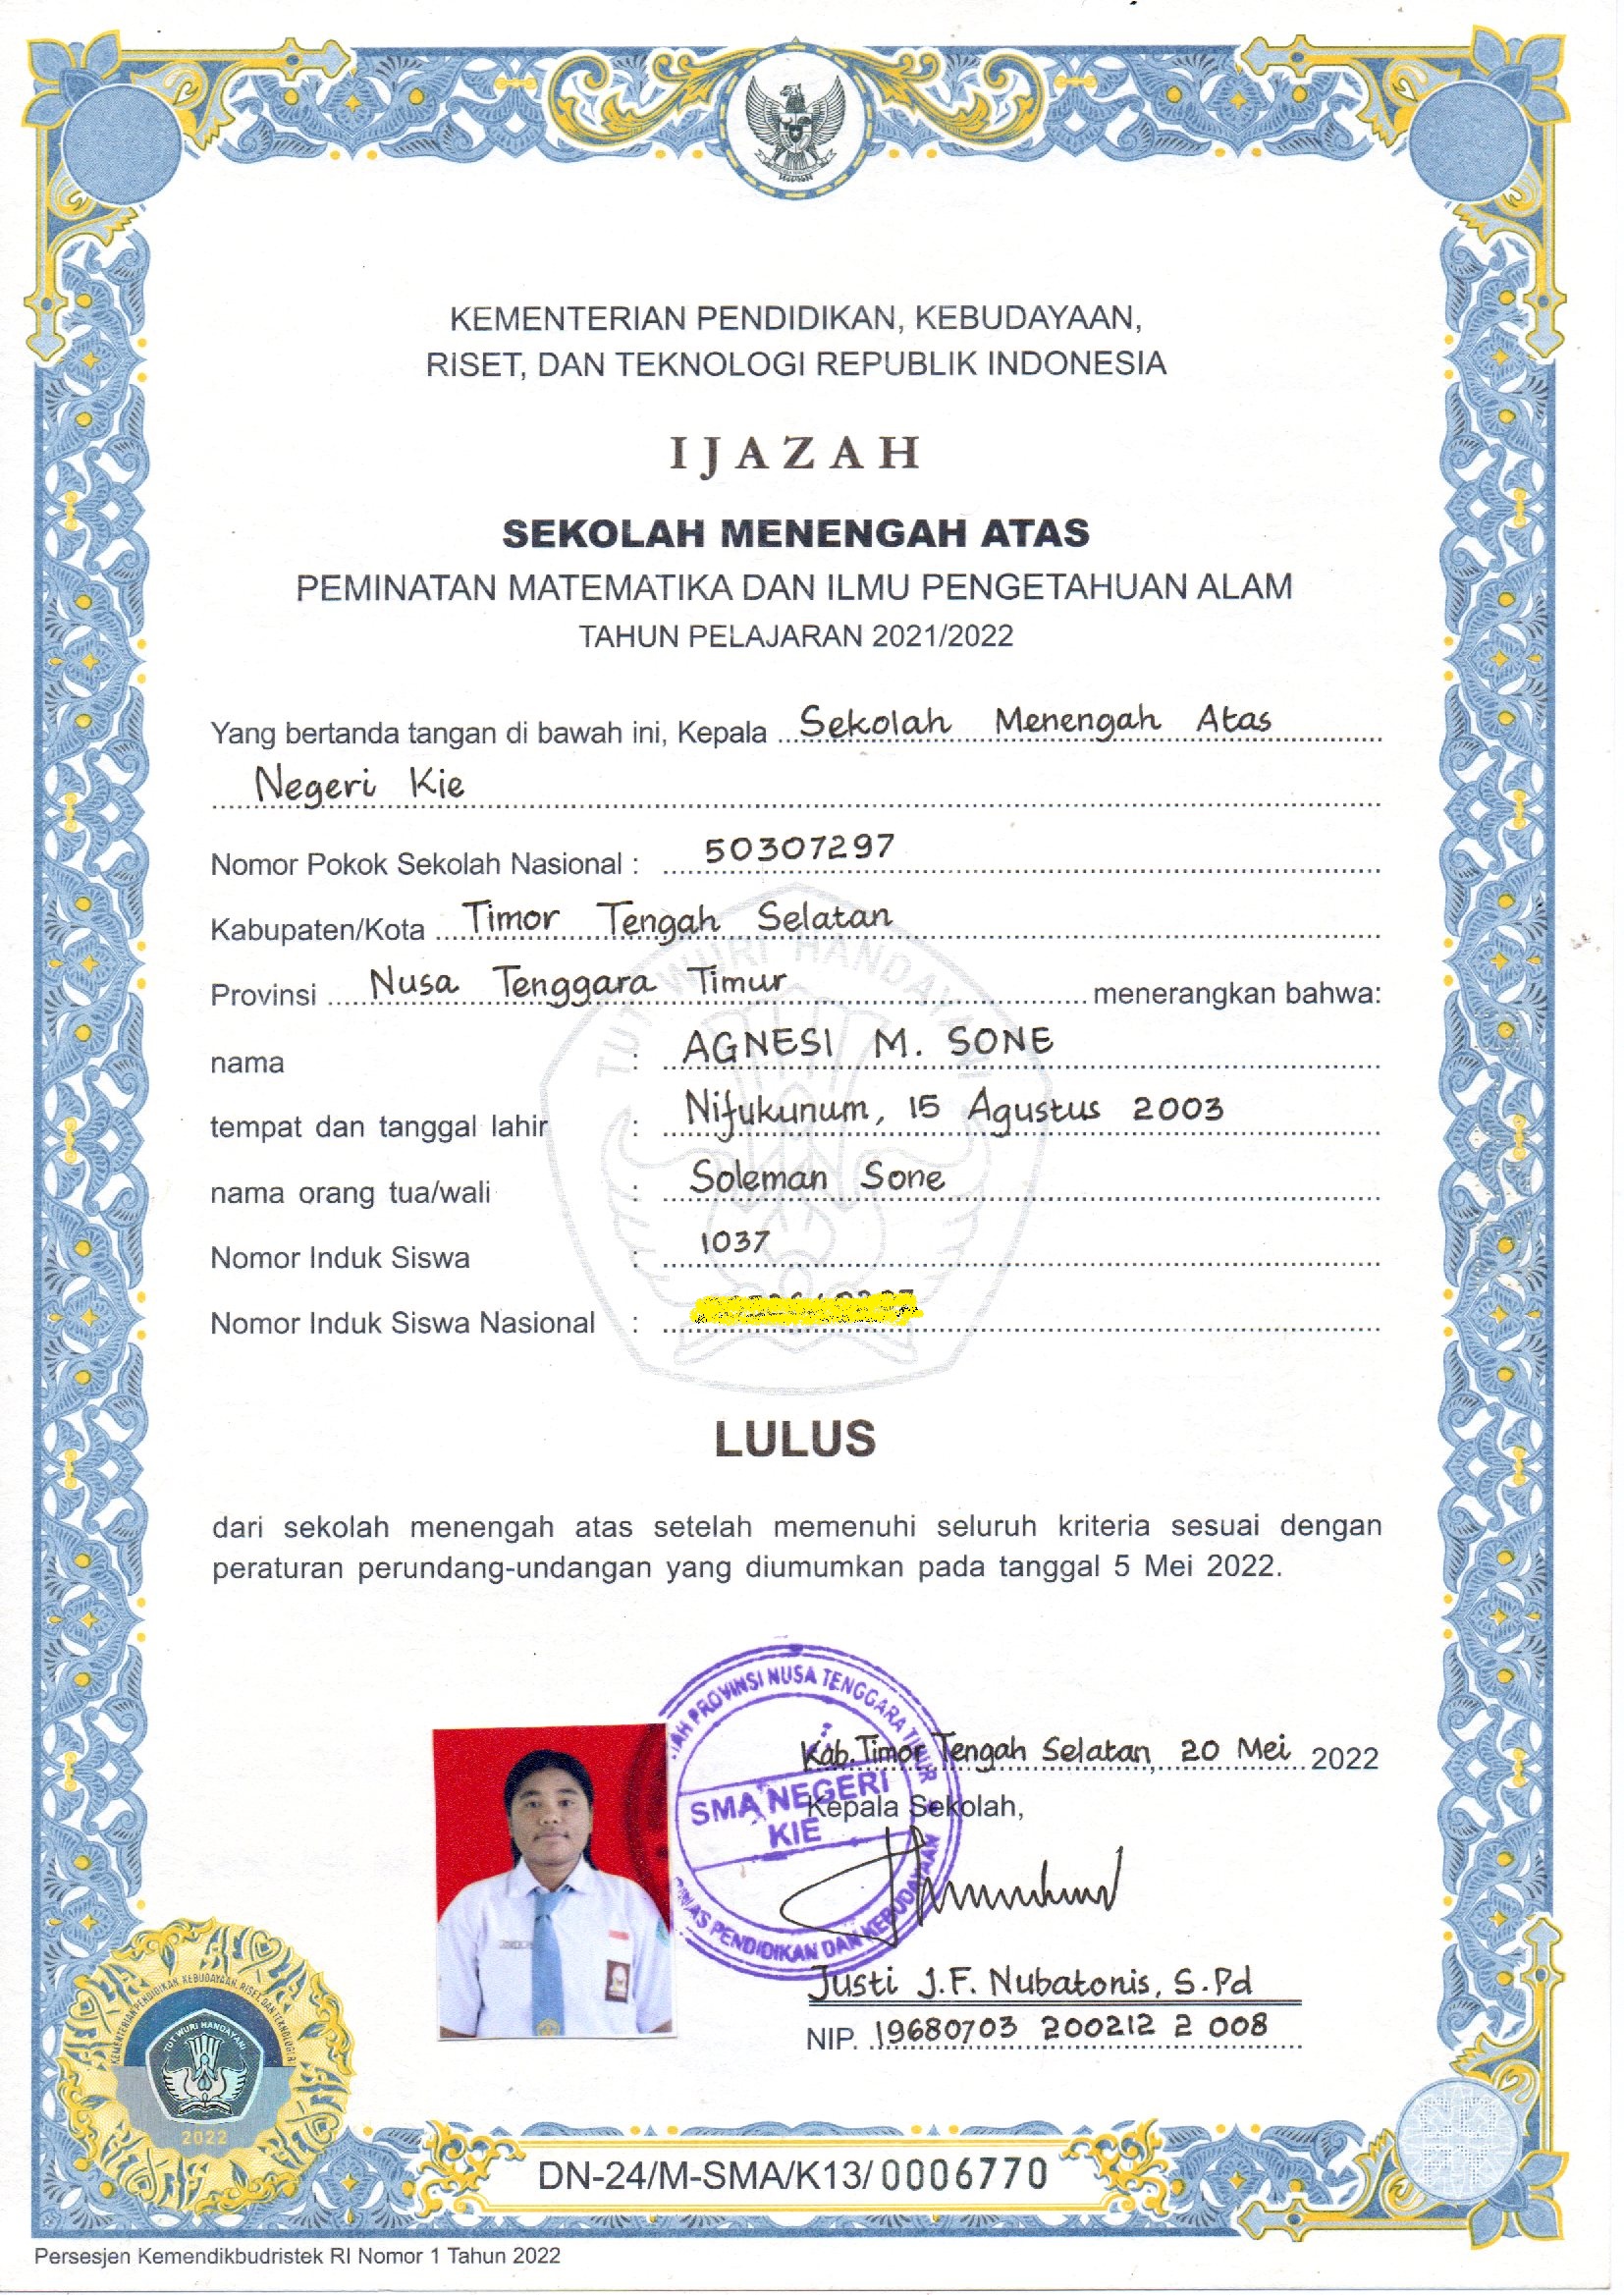 KEMENTERIAN PENDIDIKAN, KEBUDAYAAN,
RISET, DAN TEKNOLOGI REPUBLIK INDONESIA
IJAZAH
SEKOLAH MENENGAH ATAS
PEMINATAN MATEMATIKA DAN ILMU PENGETAHUAN ALAM
TAHUN PELAJARAN 2021/2022
Yang bertanda tangan di bawah ini, Kepala Sekolah Menengah Atas
Negeri Kie
Nomor Pokok Sekolah Nasional : 50307297
Kabupaten/Kota Timor Tengah Selatan
Provinsi Nusa Tenggara Timur menerangkan bahwa:
nama : AGNESI M. SONE
tempat dan tanggal lahir : Nifukunum, 15 Agustus 2003
nama orang tua/wali : Soleman Sone
Nomor Induk Siswa : 1037
Nomor Induk Siswa Nasional :
TUT WURI HANDAYANI
LULUS
dari sekolah menengah atas setelah memenuhi seluruh kriteria sesuai dengan
peraturan perundang-undangan yang diumumkan pada tanggal 5 Mei 2022.
PROVINSI NUSA TENGGARA TIMUR
SMA NEGERI
KIE
DINAS PENDIDIKAN DAN KEBUDAYAAN
Kab. Timor Tengah Selatan, 20 Mei 2022
Kepala Sekolah,
Justi J.F. Nubatonis, S.Pd
NIP. 19680703 200212 2 008
KEMENTERIAN PENDIDIKAN, KEBUDAYAAN, RISET, DAN TEKNOLOGI
TUT WURI HANDAYANI
2022
DN-24/M-SMA/K13/ 0006770
Persesjen Kemendikbudristek RI Nomor 1 Tahun 2022